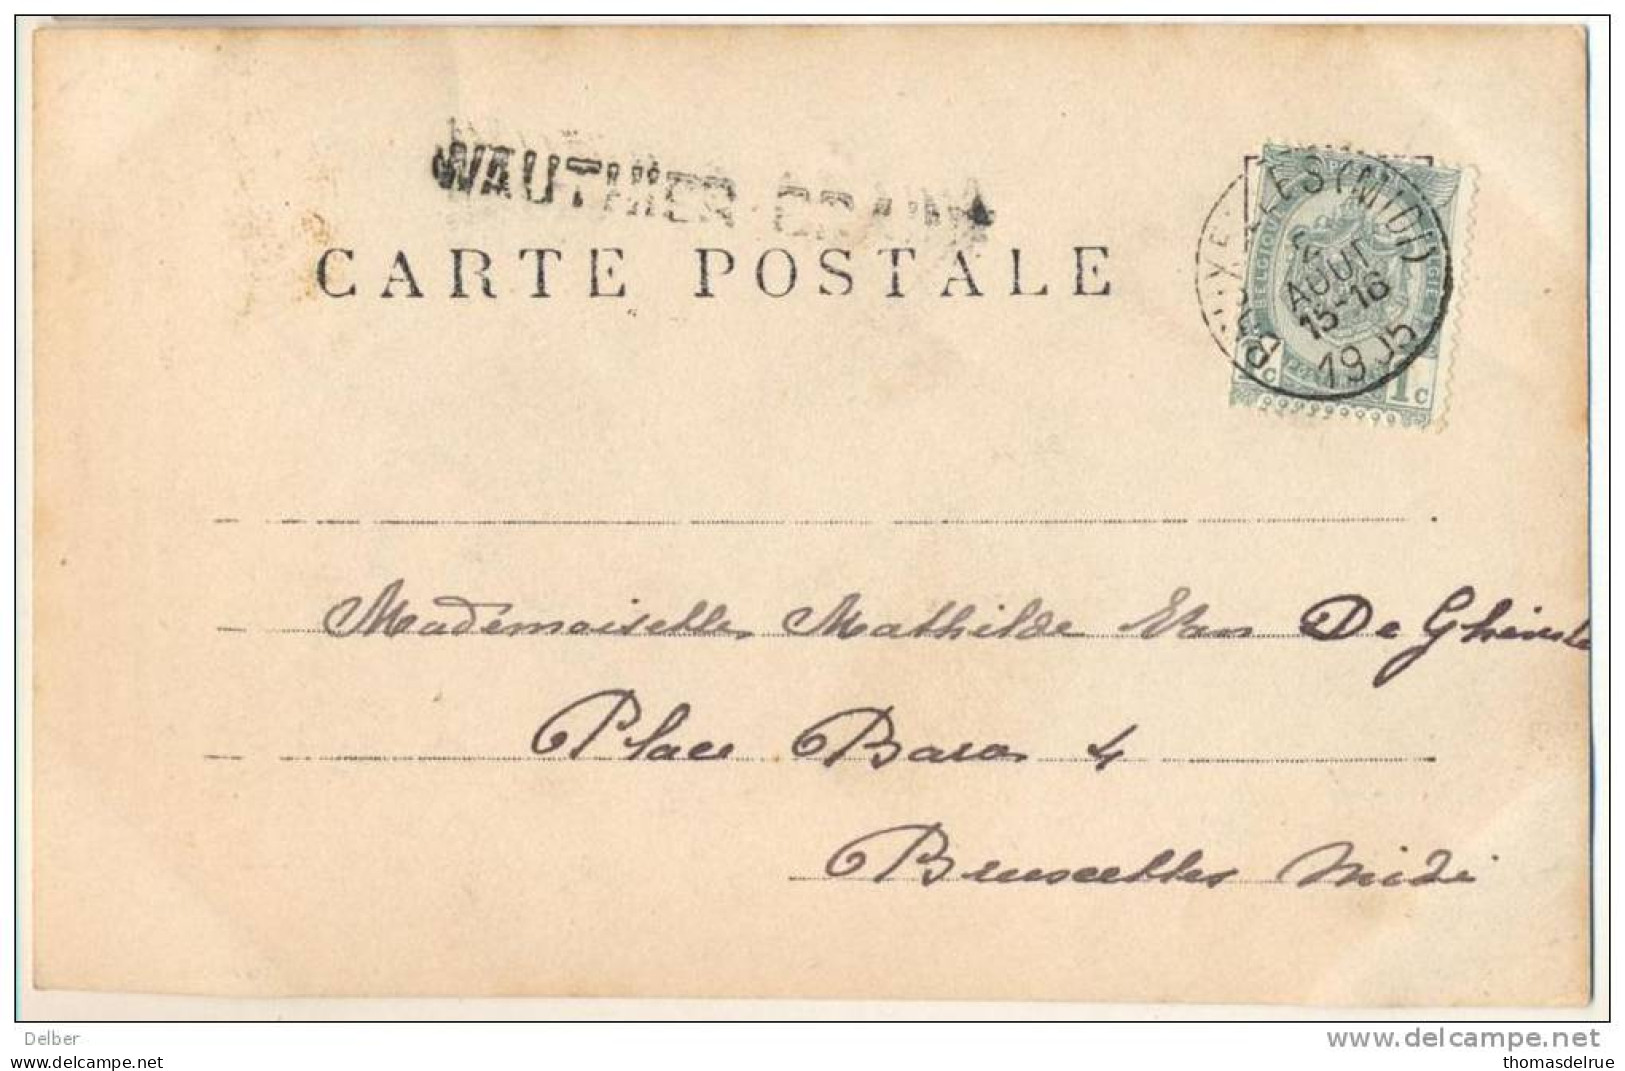 WAUTHIER-BRAINE
CARTE POSTALE
BRUXELLES (MIDI)
2
AOUT
15-16
1905
BELGIQUE
1c
Mademoiselle Mathilde Van De
Place Bara 4
Bruxelles Midi
Delber
delcampe.net
posté par
thomasdelrue